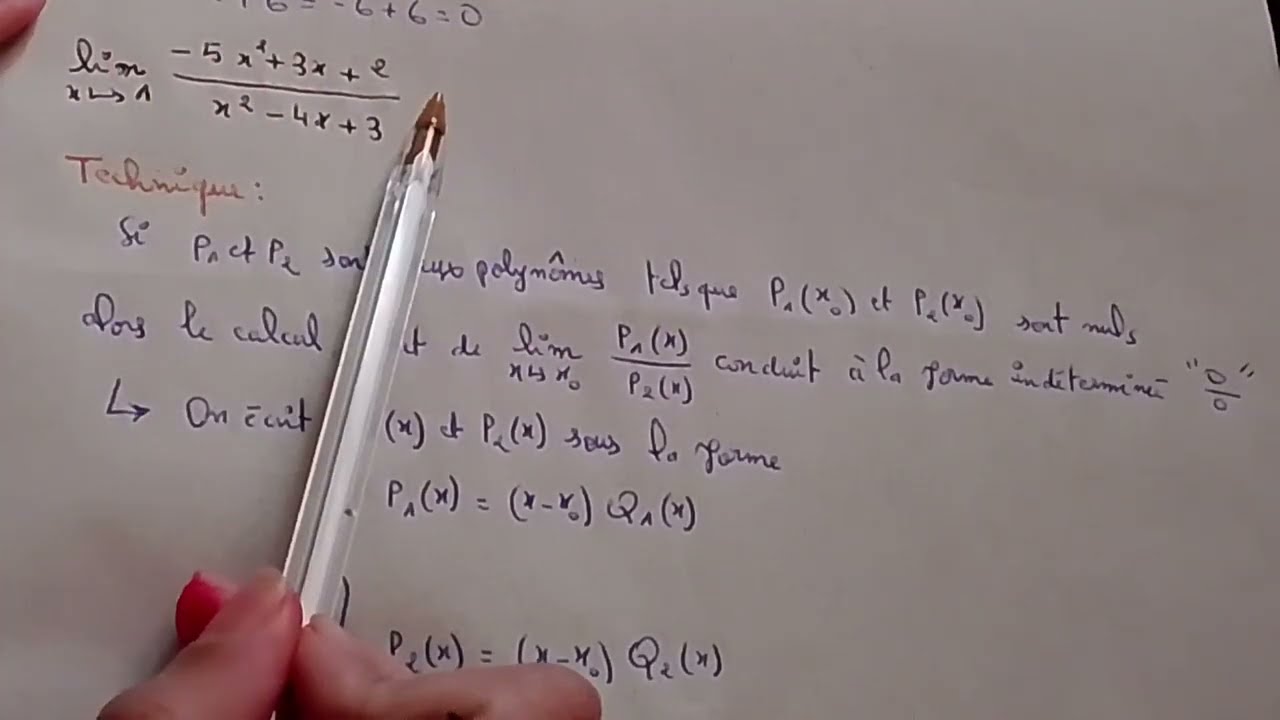 6 = -6 + 6 = 0
lim x↦1 (-5x² + 3x + 2)/(x² - 4x + 3)
Technique :
Si P₁ et P₂ polynômes tels que P₁(x₀) et P₂(x₀) sont nuls
alors le calcul de lim x↦x₀ P₁(x)/P₂(x) conduit à la forme indéterminée "0/0"
↳ On écrit (x) et P₂(x) sous la forme
P₁(x) = (x-x₀) Q₁(x)
P₂(x) = (x-x₀) Q₂(x)